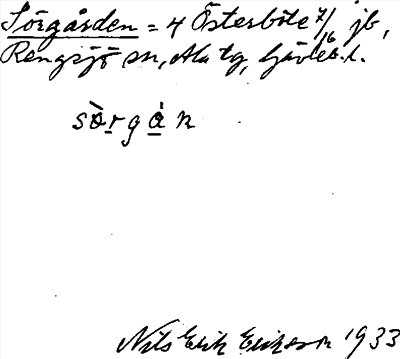 Sörgården = 4 Österböle 7/16 jb,
Rengsjö sn, Ala tg, Gävleb. l.
sòrgá̀n
Nils Erik Eriksson 1933